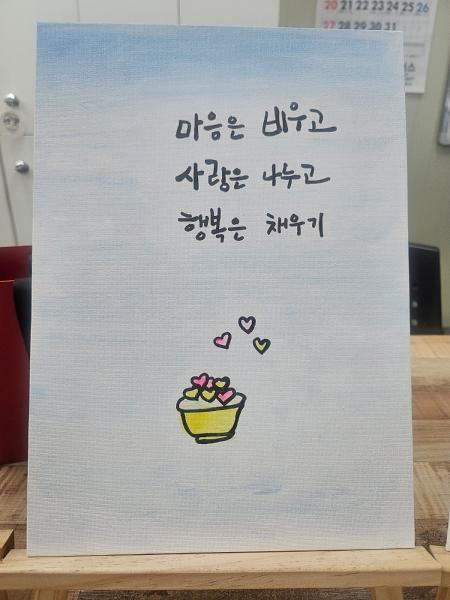 20 21 22 23 24 25 26
27 28 29 30 31
마음은 비우고
사랑은 나누고
행복은 채우기